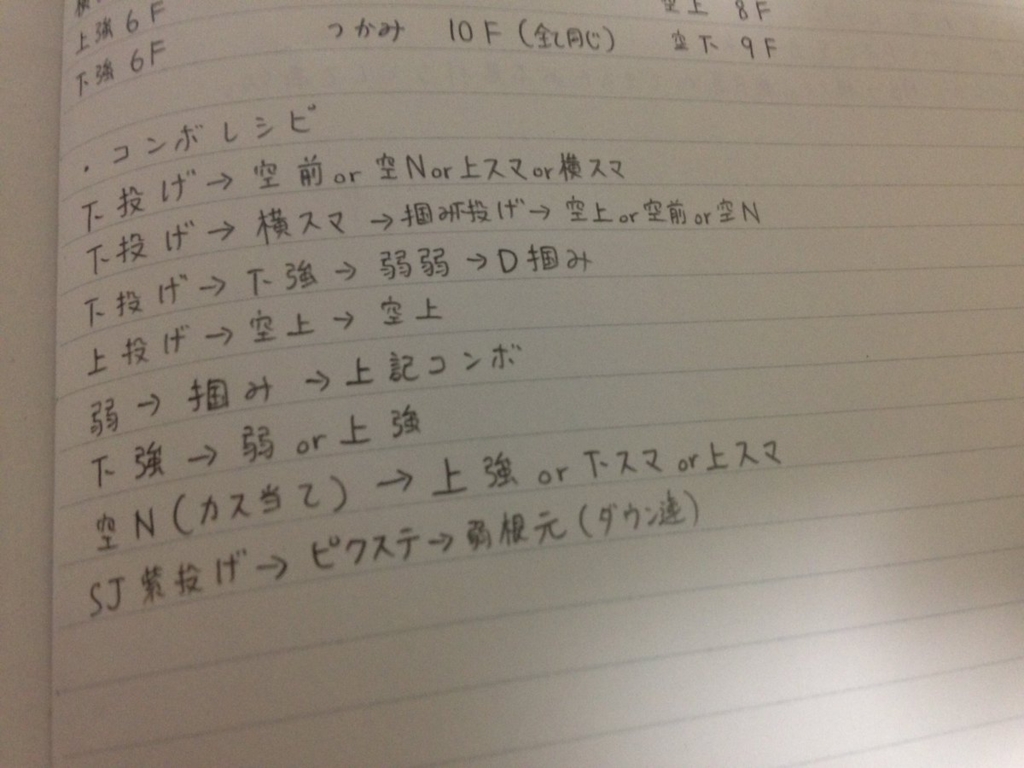 上強 6F
下強 6F
つかみ 10F (全て同じ)
空上 8F
空下 9F
・コンボレシピ
下投げ→空前or空Nor上スマor横スマ
下投げ→横スマ→掴み下投げ→空上or空前or空N
下投げ→下強→弱弱→D掴み
上投げ→空上→空上
弱→掴み→上記コンボ
下強→弱or上強
空N(カス当て)→上強or下スマor上スマ
SJ紫投げ→ピクステ→弱根元(ダウン連)